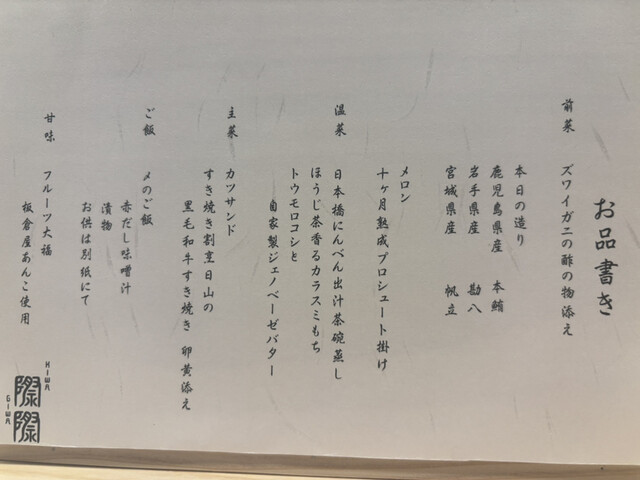 お品書き
前菜 ズワイガニの酢の物添え
本日の造り
鹿児島県産 本鮪
岩手県産 勘八
宮城県産 帆立
メロン
十ヶ月熟成プロシュート掛け
温菜 日本橋にんべん出汁茶碗蒸し
ほうじ茶香るカラスミもち
トウモロコシと
自家製ジェノベーゼバター
主菜 カツサンド
すき焼き割烹日山の
黒毛和牛すき焼き 卵黄添え
ご飯 〆のご飯
赤だし味噌汁
漬物
お供は別紙にて
甘味 フルーツ大福
板倉屋あんこ使用
HIWA
GIWA
際際